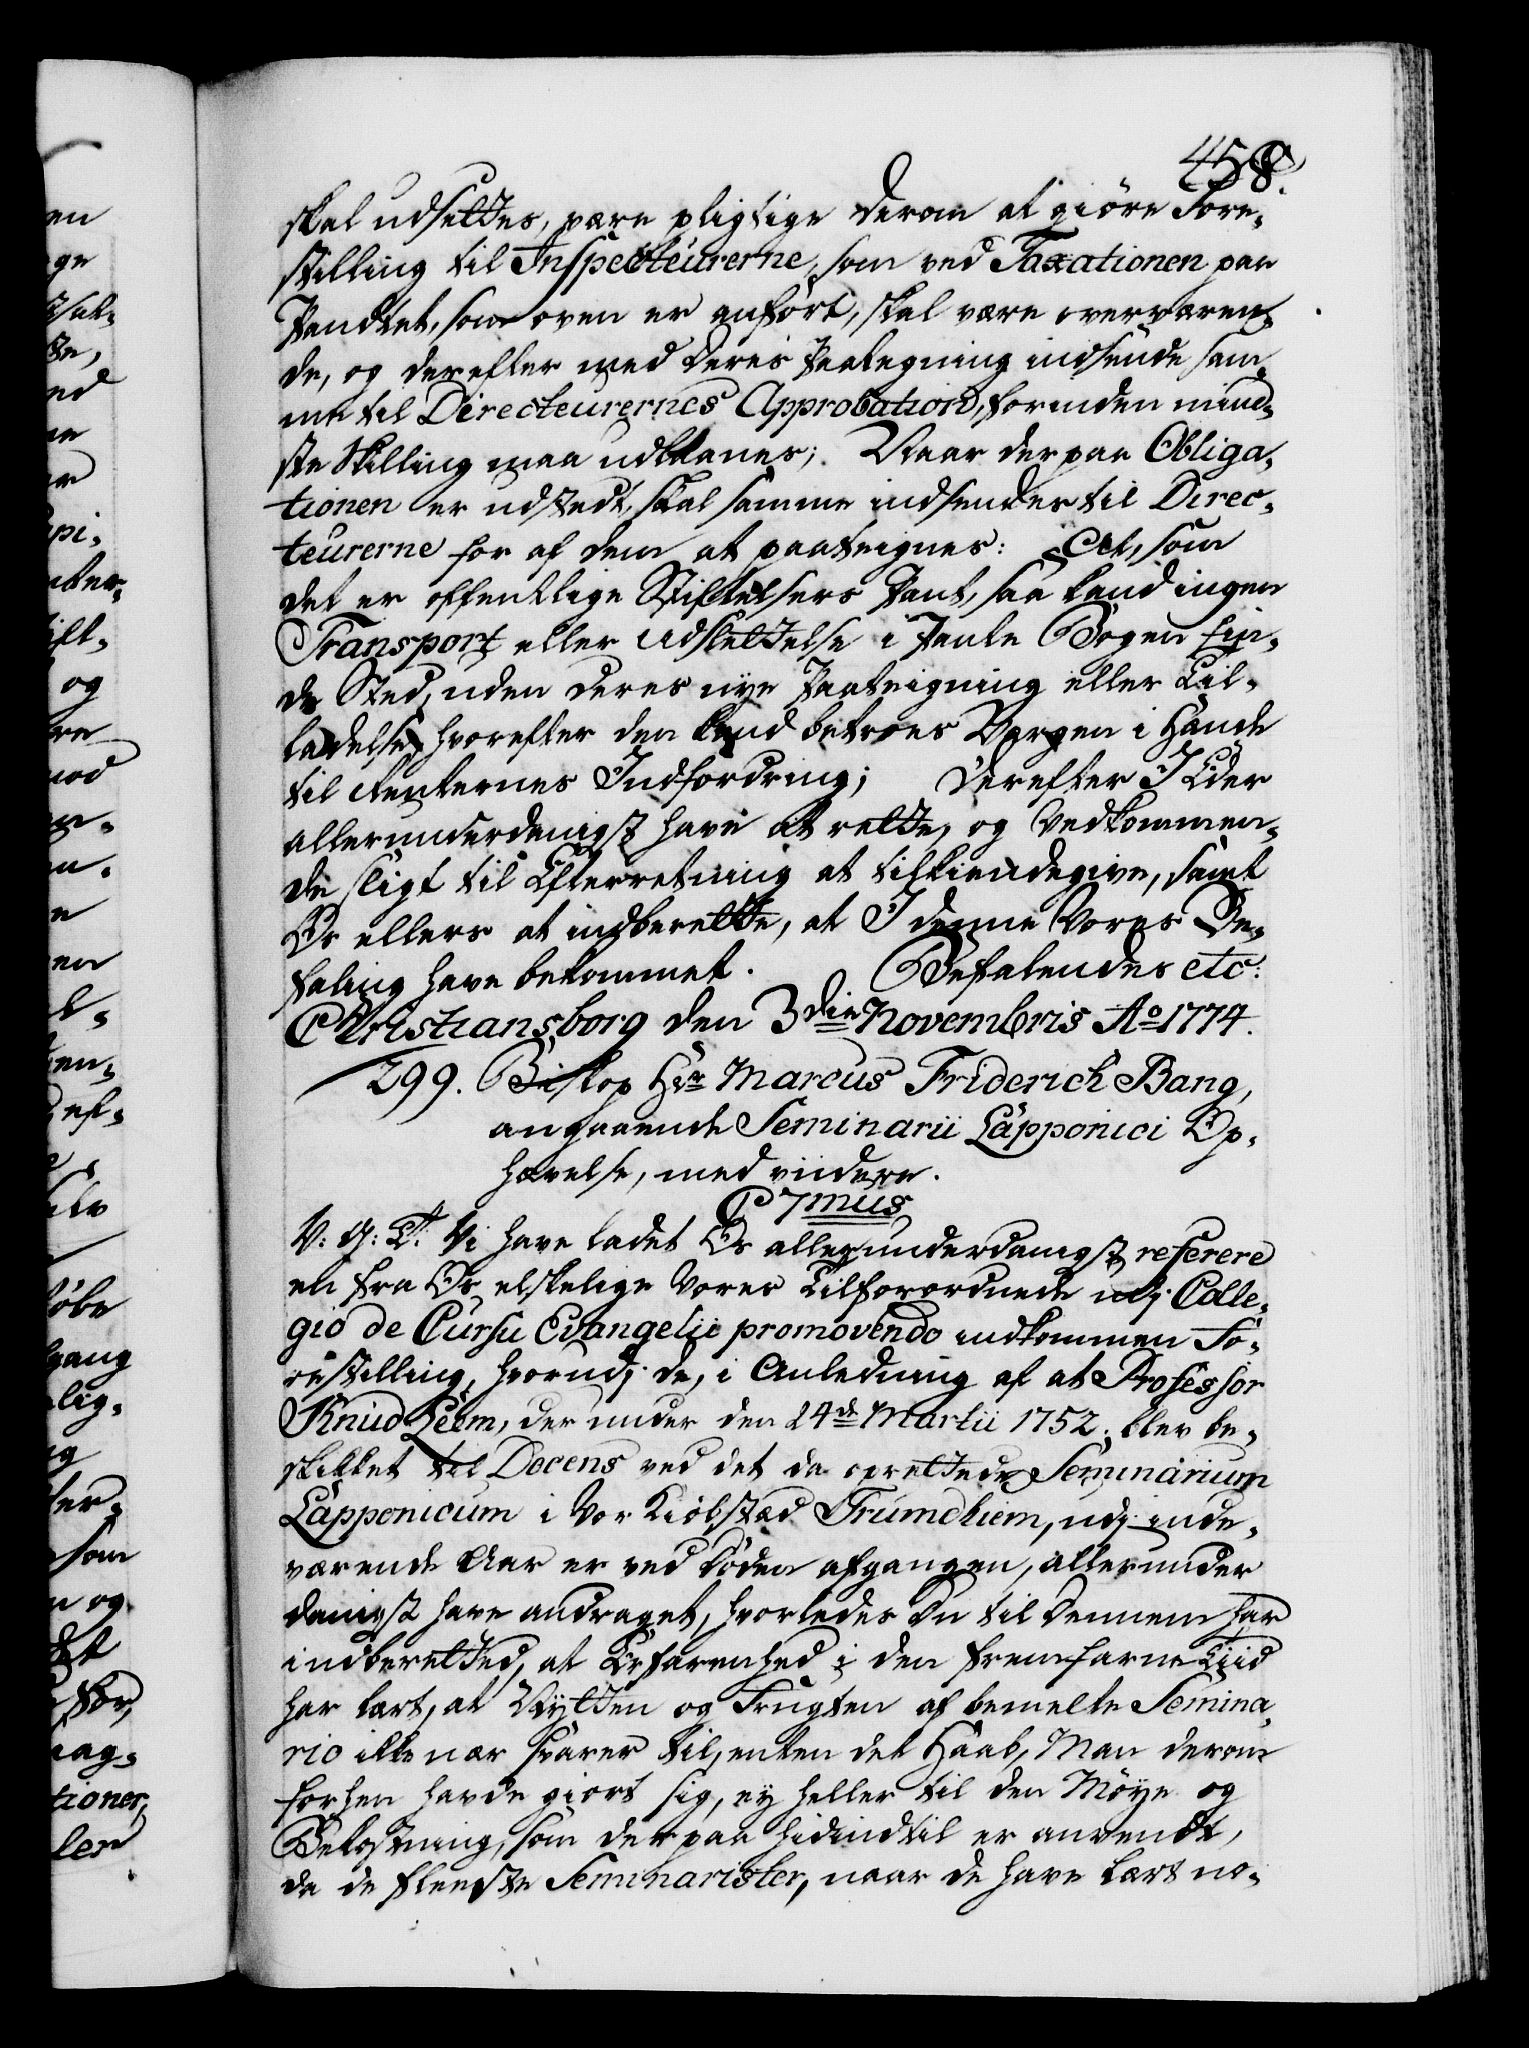 458.
skal udsettes, være pligtige derom at giöre Fore-
stilling til Inspecteurerne, som ved Taxationen paa
Pandtet, som oven er anfört, skal være overværen-
de, og derefter med deres Paategning indsende sam-
me til Directeurernes Approbation, forinden mind-
ste Skilling maa udlaanes; Naar derpaa Obliga-
tionen er udstedt, skal samme indsendes til Direc-
teurerne for af dem at paateignes: At, som
det er offentlige Stiftelsers Pant, saa kand ingen
Transport eller Udslettelse i Pante Bogen fin-
de Sted, uden deres nye Paateigning eller Til-
ladelse, hvorefter den kand betroes Vergen i Hände
til Renternes Indfordring; Derefter I Eder
allerunderdanigst have at rette, og Vedkommen-
de sligt til Efterretning at tilkiendegive, samt
Os ellers at indberette, at I denne Vores Be-
faling have bekommet. Befalendes etc:
Christiansborg den 3die Novembris Ao 1774.
299. Biskop Hr Marcus Friderich Bang,
angaaende Seminarii Lapponici Op-
hævelse, med videre.
C 7mus
V: G: T: Vi have ladet Os allerunderdanigst referere
en fra Os elskelige Vores Tilforordnede udj Colle-
gio de Cursu Evangelii promovendo indkommen Fo-
restilling, hvorudj de, i Anledning af at Professor
Knud Leem, der under den 24de Martii 1752. blev be-
skikket til Docens ved det da oprettede Seminarium
Lapponicum i Vor Kiöbstæd Trundhiem, udj inde-
værende Aar er ved Döden afgangen, allerunder
danigst have andraget, hvorledes Du til Dennem har
indberetted, at Erfarenhed i den fremfarne Tiid
har lært, at Nytten og Frugten af bemelte Semina-
rio ikke nær svarer til, enten det Haab, Man derom
forhen havde giort sig, ey heller til den Möye og
Bekostning, som derpaa hidindtil er anvendt,
da de fleeste Seminarister, naar de have lært no-